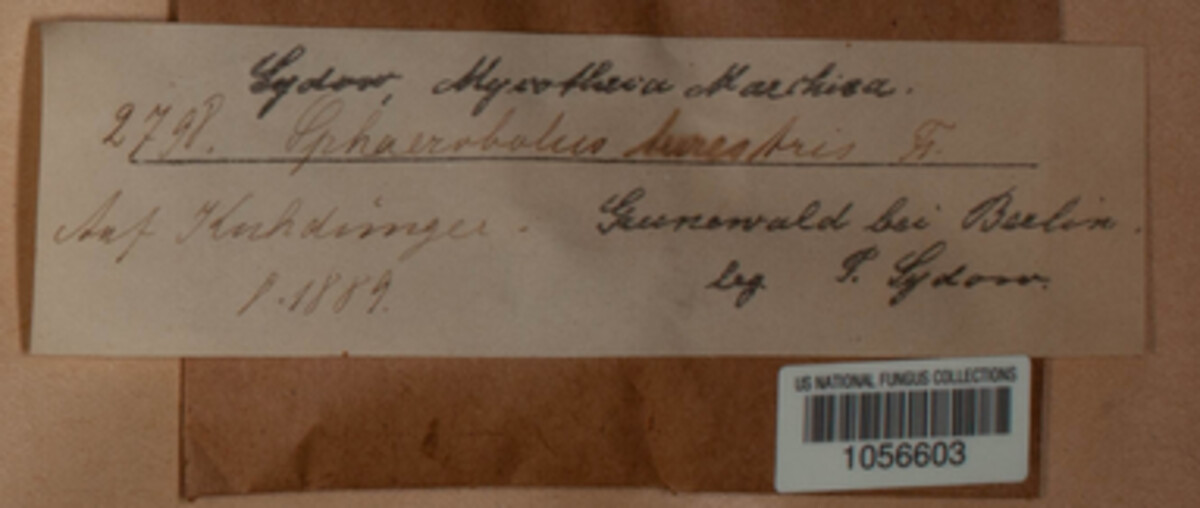 Sydow, Mycotheca Marchica.
2798. Sphaerobolus terrestris Fr.
Auf Kuhdünger. Grunewald bei Berlin.
1889. leg. P. Sydow.
US NATIONAL FUNGUS COLLECTIONS
1056603